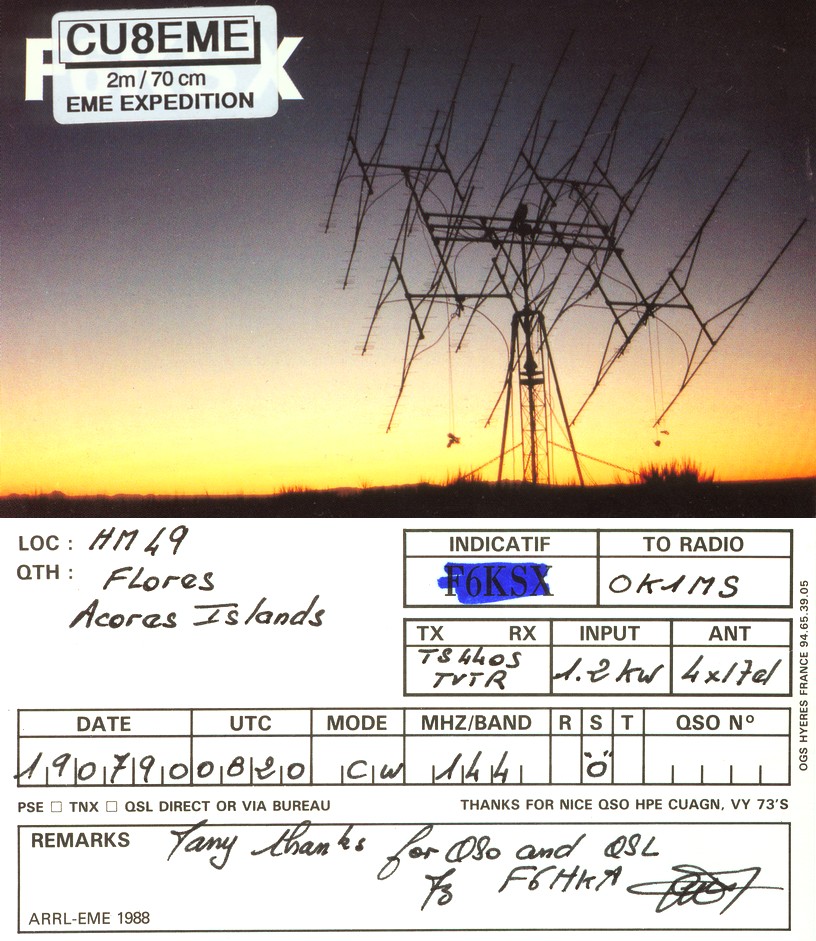 CU8EME
2m / 70 cm
EME EXPEDITION
LOC : HM49
QTH : Flores
Acores Islands
INDICATIF TO RADIO
F6KSX OK1MS
TX RX INPUT ANT
TS440S
TVTR 1.2 kW 4x17el
DATE UTC MODE MHZ/BAND R S T QSO Nº
190790 0820 CW 144 "O"
PSE □ TNX □ QSL DIRECT OR VIA BUREAU THANKS FOR NICE QSO HPE CUAGN, VY 73'S
REMARKS Many thanks for QSO and QSL
73 F6HKA
ARRL-EME 1988
OGS HYERES FRANCE 94.65.39.05